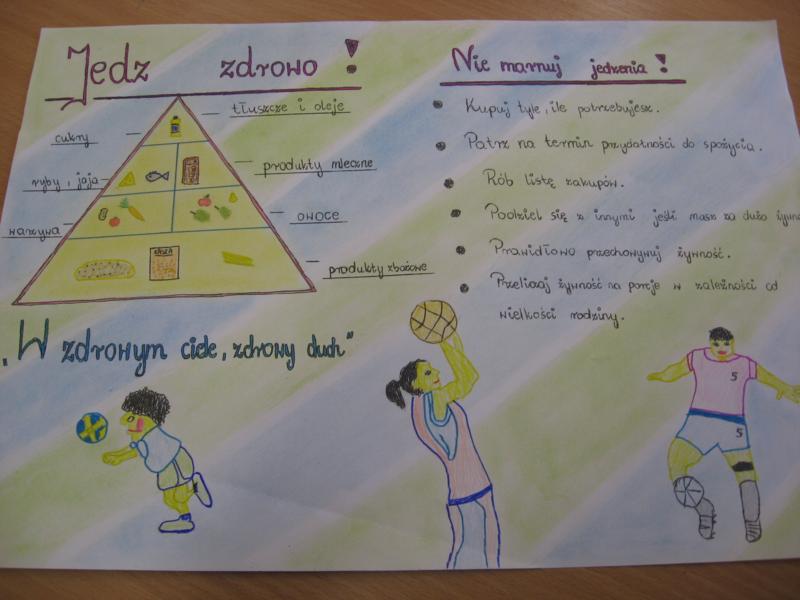 Jedz zdrowo!
tłuszcze i oleje
cukry
produkty mleczne
ryby, jaja
owoce
warzywa
produkty zbożowe
KASZA
„W zdrowym ciele, zdrowy duch"
Nie marnuj jedzenia!
Kupuj tyle, ile potrzebujesz.
Patrz na termin przydatności do spożycia.
Rób listę zakupów.
Podziel się z innymi jeśli masz za dużo
Prawidłowo przechowywuj żywność.
Przeliczaj żywność na porcje w zależności od
wielkości rodziny.
5
5